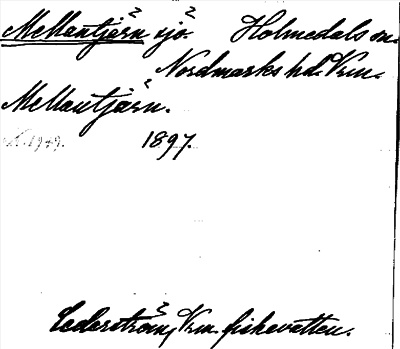 Mellantjärn sjö. Holmedals sn.
Nordmarks hd. Vrm.
Mellantjärn.
1949. 1897.
Cederström, Vrm. fiskevatten.